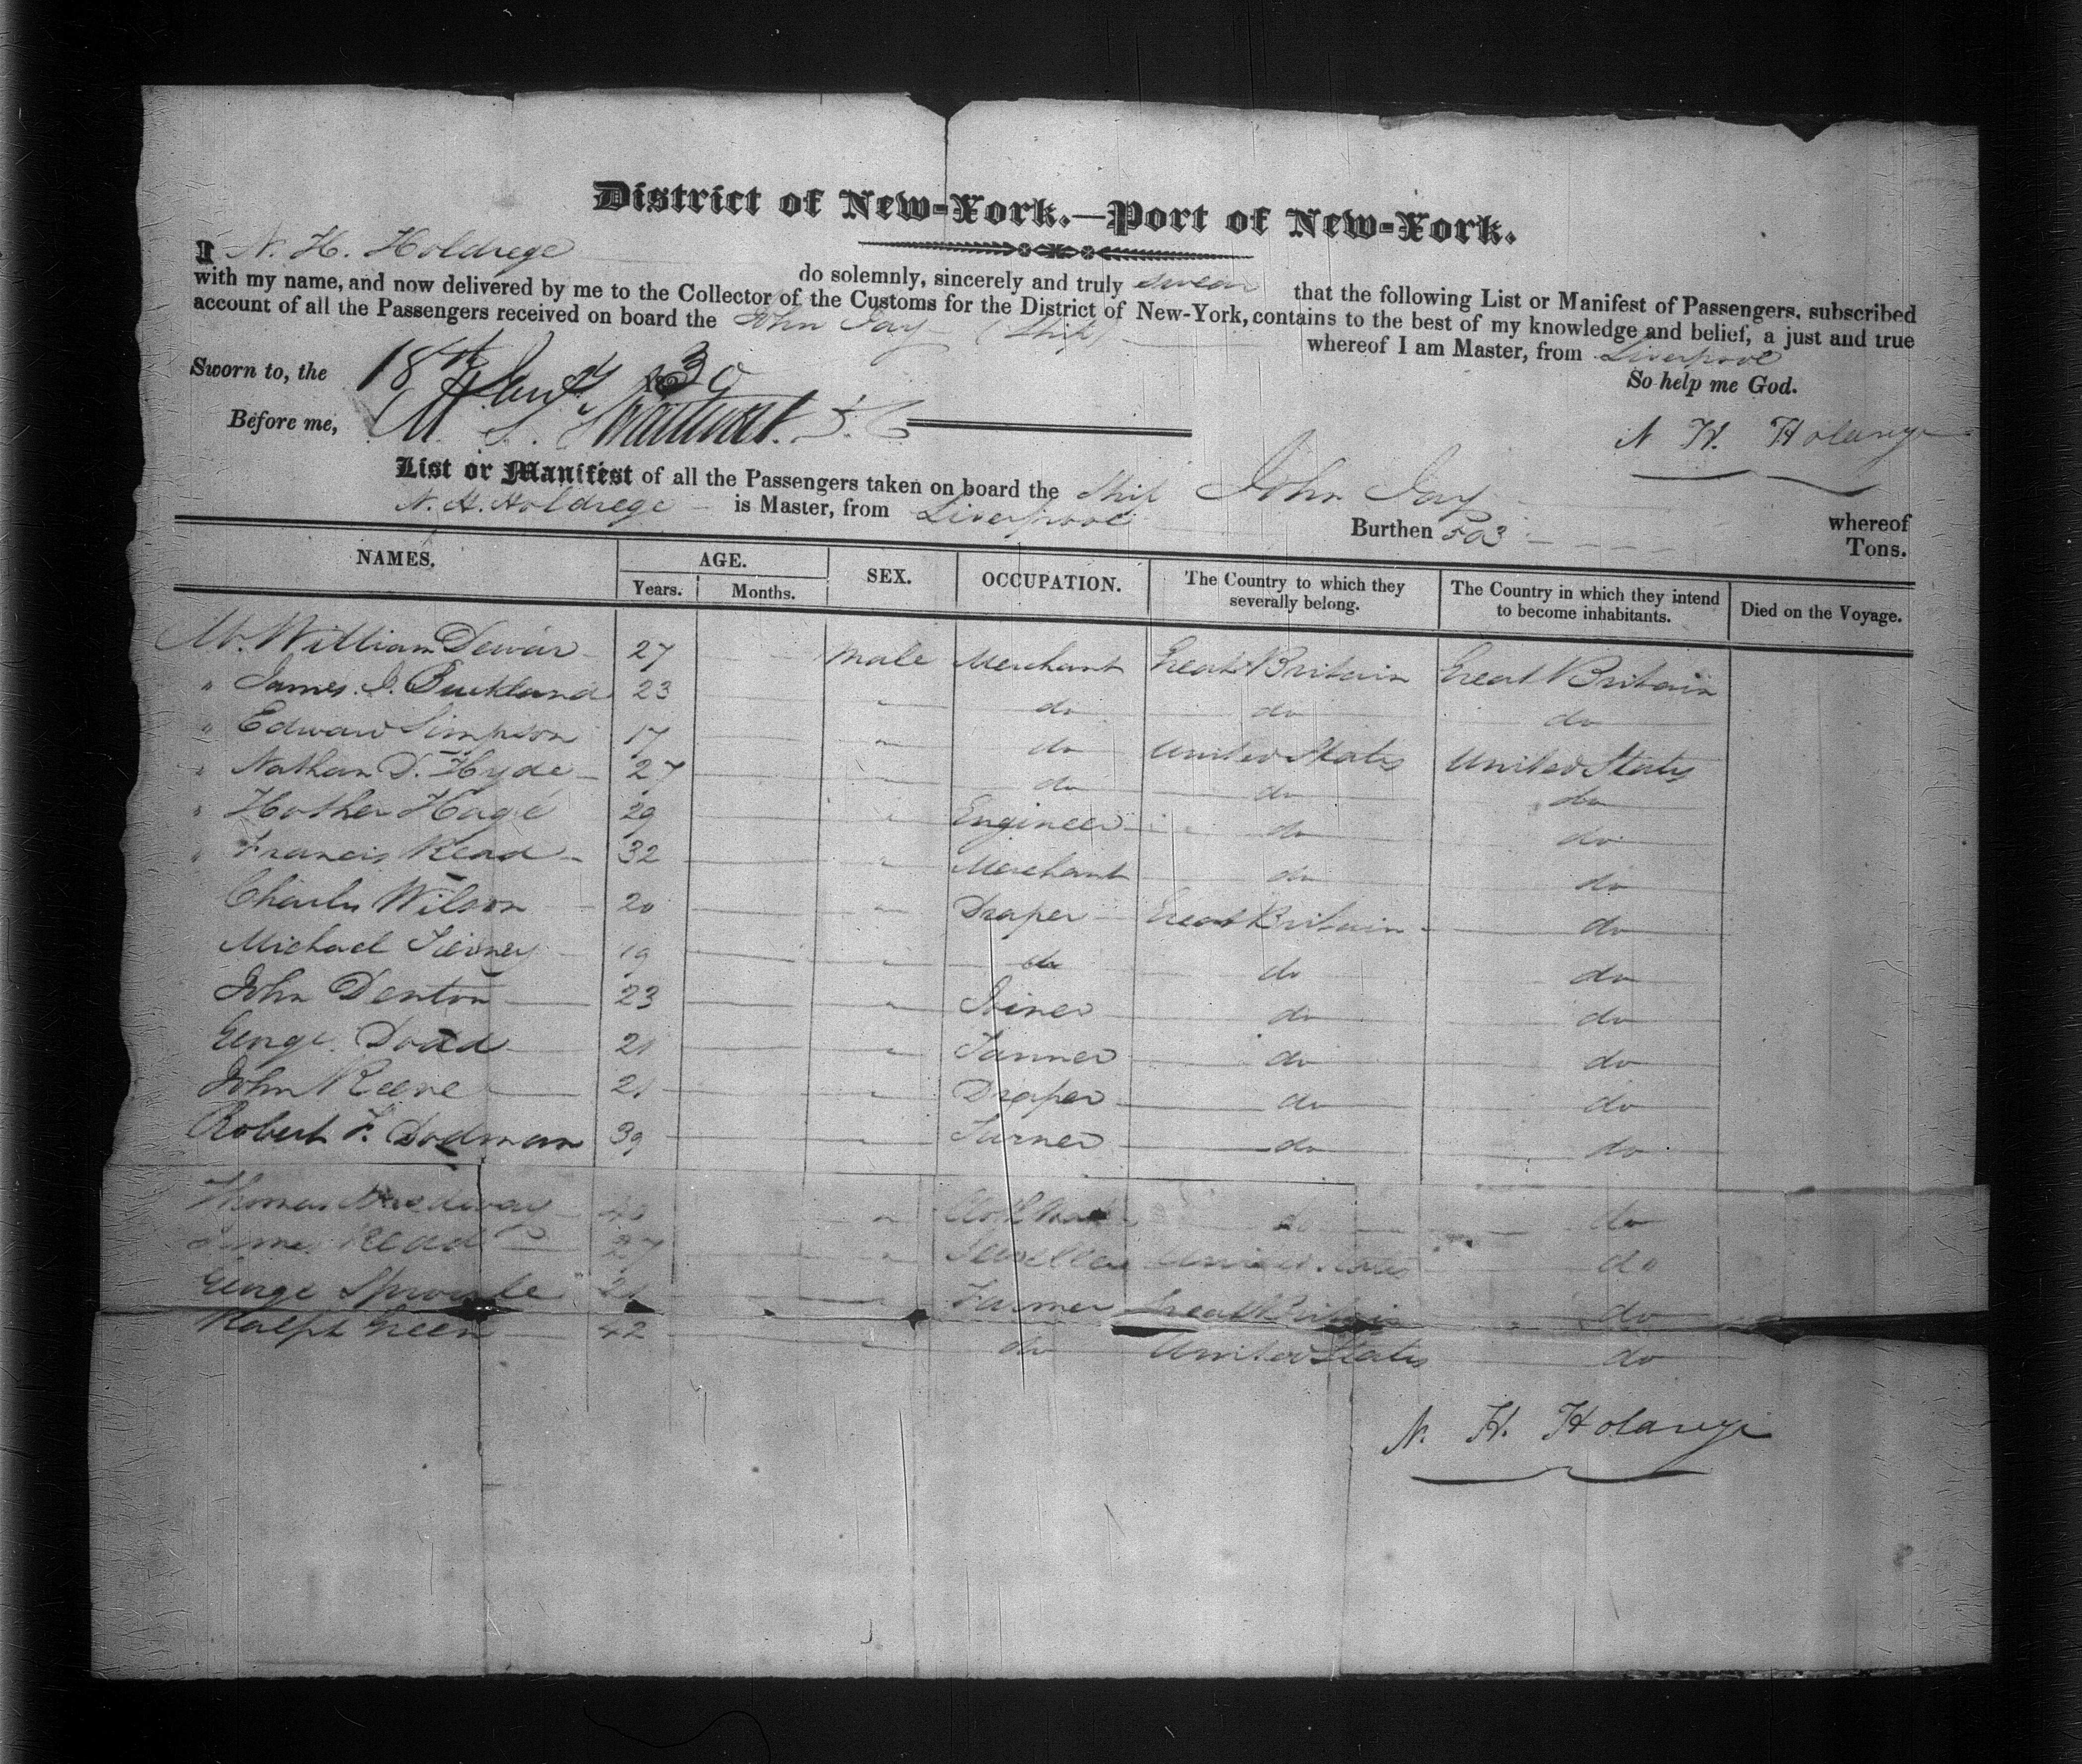 District of New-York.—Port of New-York.
I N. H. Holdrege do solemnly, sincerely and truly swear that the following List or Manifest of Passengers, subscribed
with my name, and now delivered by me to the Collector of the Customs for the District of New-York, contains to the best of my knowledge and belief, a just and true
account of all the Passengers received on board the John Jay (Ship) whereof I am Master, from Liverpool
So help me God.
Sworn to, the 18th 1830
Before me, M. S. D. C. N. H. Holdrege
List or Manifest of all the Passengers taken on board the Ship John Jay whereof
N. H. Holdrege is Master, from Liverpool Burthen 503 Tons.
NAMES. AGE. SEX. OCCUPATION. The Country to which they severally belong. The Country in which they intend to become inhabitants. Died on the Voyage.
Years. Months.
Mr. William Dewar 27 Male Merchant Great Britain Great Britain
" James J. Buckland 23 " do do do
" Edward Simpson 17 " do United States United States
" Nathan D. Hyde 27 " do do do
" Hother Hagé 29 " Engineer do do
" Francis Read 32 " Merchant do do
Charles Wilson 20 " Draper Great Britain do
Michael Tierney 19 " do do do
John Denton 23 " do do
George Dodd 21 " Tanner do do
John Reeve 21 " Draper do do
Robert F. Dodman 39 " Turner do do
Thomas 40 " do do
James Read 27 " Jeweller United States do
George Sproule 21 " Farmer Great Britain do
Ralph Green 42 " do United States do
N. H. Holdrege